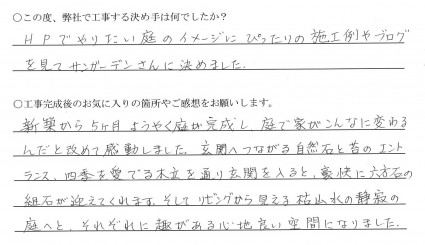 ○この度、弊社で工事する決め手は何でしたか？
HPでやりたい庭のイメージにぴったりの施工例やブログ
を見てサンガーデンさんに決めました。
○工事完成後のお気に入りの箇所やご感想をお願いします。
新築から5ヶ月ようやく庭が完成し、庭で家がこんなに変わる
んだと改めて感動しました。玄関へつながる自然石と苔のエント
ランス、四季を愛でる木立を通り玄関を入ると、豪快に六方石の
組石が迎えてくれます。そしてリビングから見える枯山水の静寂の
庭へと、それぞれに趣がある心地良い空間になりました。